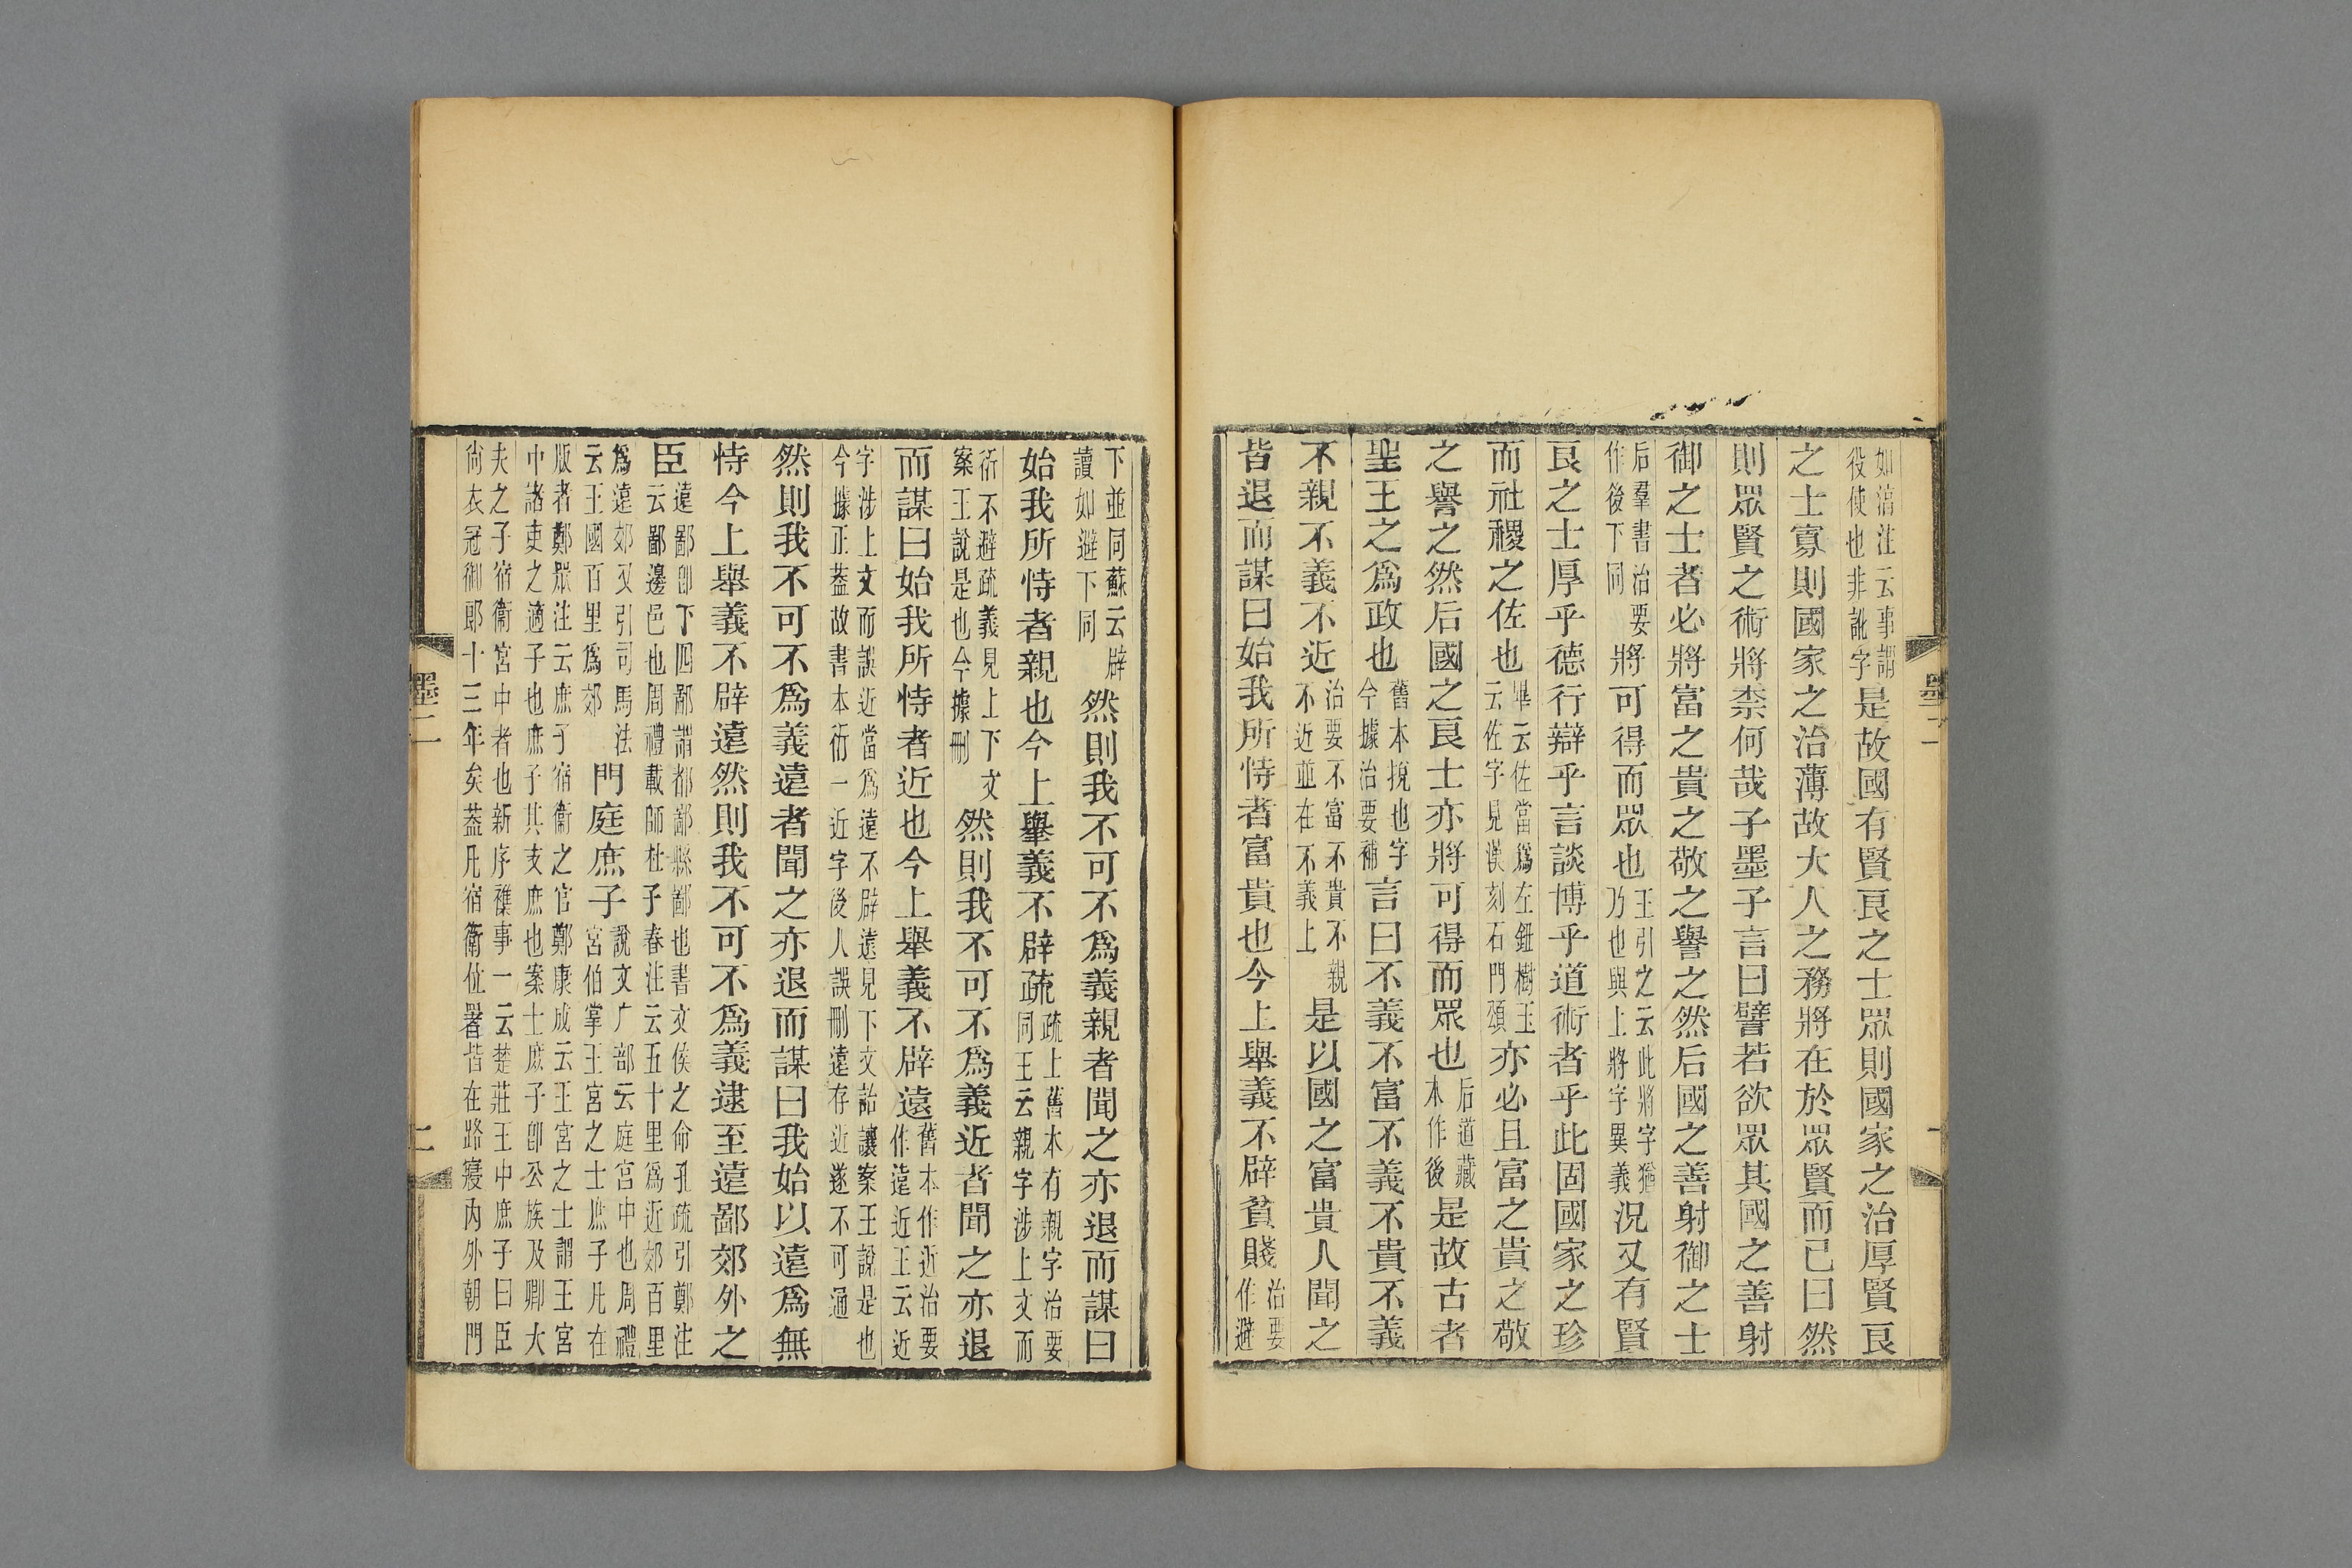 如淳注云事謂役使也非訛字是故國有賢良之士眾則國家之治厚賢良
之士寡則國家之治薄故大人之務將在於眾賢而已曰然
則眾賢之術將柰何哉子墨子言曰譬若欲眾其國之善射
御之士者必將富之貴之敬之譽之然后國之善射御之士
后羣書治要作後下同將可得而眾也王引之云此將字猶乃也與上將字異義況又有賢
良之士厚乎德行辯乎言談博乎道術者乎此固國家之珍
而社稷之佐也畢云佐當爲左鈕樹玉云佐字見漢刻石門頌亦必且富之貴之敬
之譽之然后國之良士亦將可得而眾也后道藏本作後是故古者
聖王之爲政也舊本挩也字今據治要補言曰不義不富不義不貴不義
不親不義不近治要不富不貴不親不近並在不義上是以國之富貴人聞之
皆退而謀曰始我所恃者富貴也今上舉義不辟貧賤治要作避
墨二
一
下並同蘇云辟讀如避下同然則我不可不爲義親者聞之亦退而謀曰
始我所恃者親也今上舉義不辟疏疏上舊本有親字治要同王云親字涉上文而
衍不避疏義見上下文案王說是也今據刪然則我不可不爲義近者聞之亦退
而謀曰始我所恃者近也今上舉義不辟遠舊本作近治要作遠近王云近
字涉上文而誤近當爲遠不辟遠見下文詒讓案王說是也今據正蓋故書本衍一近字後人誤刪遠存近遂不可通
然則我不可不爲義遠者聞之亦退而謀曰我始以遠爲無
恃今上舉義不辟遠然則我不可不爲義逮至遠鄙郊外之
臣遠鄙卽下四鄙謂都鄙縣鄙也書文侯之命孔疏引鄭注云鄙邊邑也周禮載師杜子春注云五十里爲近郊百里
爲遠郊又引司馬法云王國百里爲郊門庭庶子說文广部云庭宮中也周禮宮伯掌王宮之士庶子凡在
版者鄭眾注云庶子宿衞之官鄭康成云王宮之士謂王宮中諸吏之適子也庶子其支庶也案士庶子卽公族及卿大
夫之子宿衞宮中者也新序襍事一云楚莊王中庶子曰臣尙衣冠御郎十三年矣蓋凡宿衞位署皆在路寢內外朝門
墨二
二